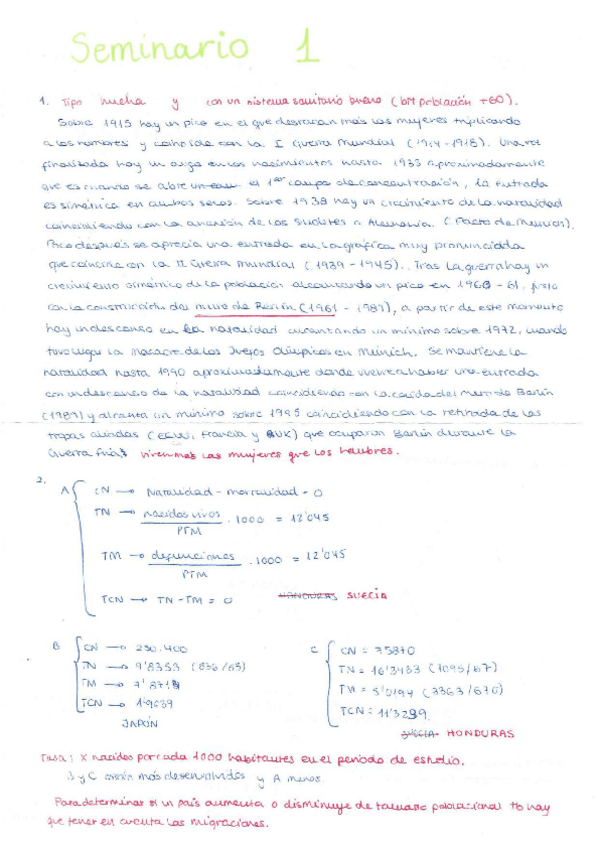 Seminario 1
1. Tipo hucha y con un sistema sanitario bueno (bM población +60).
Sobre 1915 hay un pico en el que destacan más las mujeres triplicando
a los hombres y coincide con la I Guerra Mundial (1914-1918). Una vez
finalizada hay un auge en los nacimientos hasta 1933 aproximadamente
que es cuando se abre el 1er campo de concentración, la entrada
es simétrica en ambos sexos. Sobre 1938 hay un crecimiento de la natalidad
coincidiendo con la anexión de los Sudetes a Alemania. (Pacto de Munich).
Poco después se aprecia una entrada en la gráfica muy pronunciada
que coincide con la II Guerra Mundial (1939-1945). Tras la guerra hay un
crecimiento simétrico de la población alcanzando un pico en 1960-61, justo
con la construcción del muro de Berlín (1961-1989), a partir de este momento
hay un descenso en la natalidad alcanzando un mínimo sobre 1972, cuando
tuvo lugar la Masacre de los Juegos Olímpicos en Munich. Se mantiene la
natalidad hasta 1990 aproximadamente donde vuelve a haber una entrada
con un descenso de la natalidad coincidiendo con la caída del muro de Berlín
(1989) y alcanza un mínimo sobre 1995 coincidiendo con la retirada de las
tropas aliadas (EEUU, Francia y UK) que ocuparon Berlín durante la
Guerra fría. Viven más las mujeres que los hombres.
2.
A CN → Natalidad - mortalidad = 0
TN → nacidos vivos / PTM · 1000 = 12'045
TM → defunciones / PTM · 1000 = 12'045
TCN → TN - TM = 0 HONDURAS SUECIA
B CN → 250.400
TN → 9'8353 (636/65)
TM → 7'8718
TCN → 1'9639
JAPÓN
C CN = 75870
TN = 16'3433 (1095/67)
TM = 5'0194 (3363/670)
TCN = 11'3239.
SUECIA HONDURAS
Tasa: X nacidos por cada 1000 habitantes en el periodo de estudio.
B y C están más desarrollados y A menos.
Para determinar si un país aumenta o disminuye de tamaño poblacional tb hay
que tener en cuenta las migraciones.